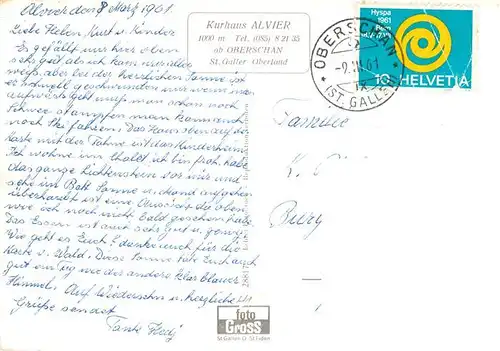 Alvier den 8 März 1961.
Liebe Helen, Kurt u. Kinder
Es gefällt uns hier oben
sehr gut als ich kam war alles
weiss, aber bei der herrlichen Sonne ist
er schnell geschwunden nur wenn man
aufwärts geht muss man schon noch
Schnee stampfen man kann auch
noch Ski fahren. Das Haus oben auf der
Karte mit der Fahne ist das Kinderheim
Ich wohne im Chalet ich bin froh. habe
das ganze Lichtenstein vor mir und
sehe im Bett Sonne u. Mond aufgehen
überhaupt ist eine Aussicht da oben
wie ich noch nicht bald gesehen habe.
Das Essen ist auch sehr gut u. genug.
Wie geht es Euch? danke auch für die
Karte v. Wald. Diese Sonne täte Euch auch
gut ein Tag wie der andere blauer
Himmel. Auf Wiedersehn u. herzliche
Grüße sendet
Tante Hedj
Kurhaus ALVIER
1000 m Tel. (085) 8 21 35
ob OBERSCHAN
St. Galler Oberland
OBERSCHAN
-9.III.61
(ST. GALLEN)
Hyspa
1961
Bern
10 HELVETIA
Familie
K.
Bury
foto
GROSS
St. Gallen O - St. Fiden